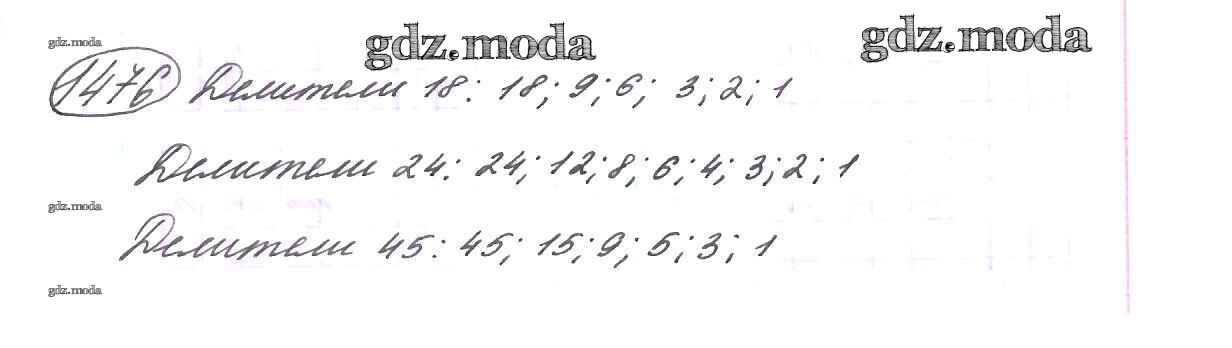 gdz.moda gdz.moda gdz.moda
1476 Делители 18: 18; 9; 6; 3; 2; 1
Делители 24: 24; 12; 8; 6; 4; 3; 2; 1
gdz.moda
Делители 45: 45; 15; 9; 5; 3; 1
gdz.moda